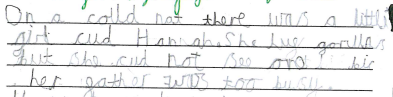 On a colld nat there was a littl
girl cud Hannah. She luv gorillas
but she cud not see bic
her gather was too busy.